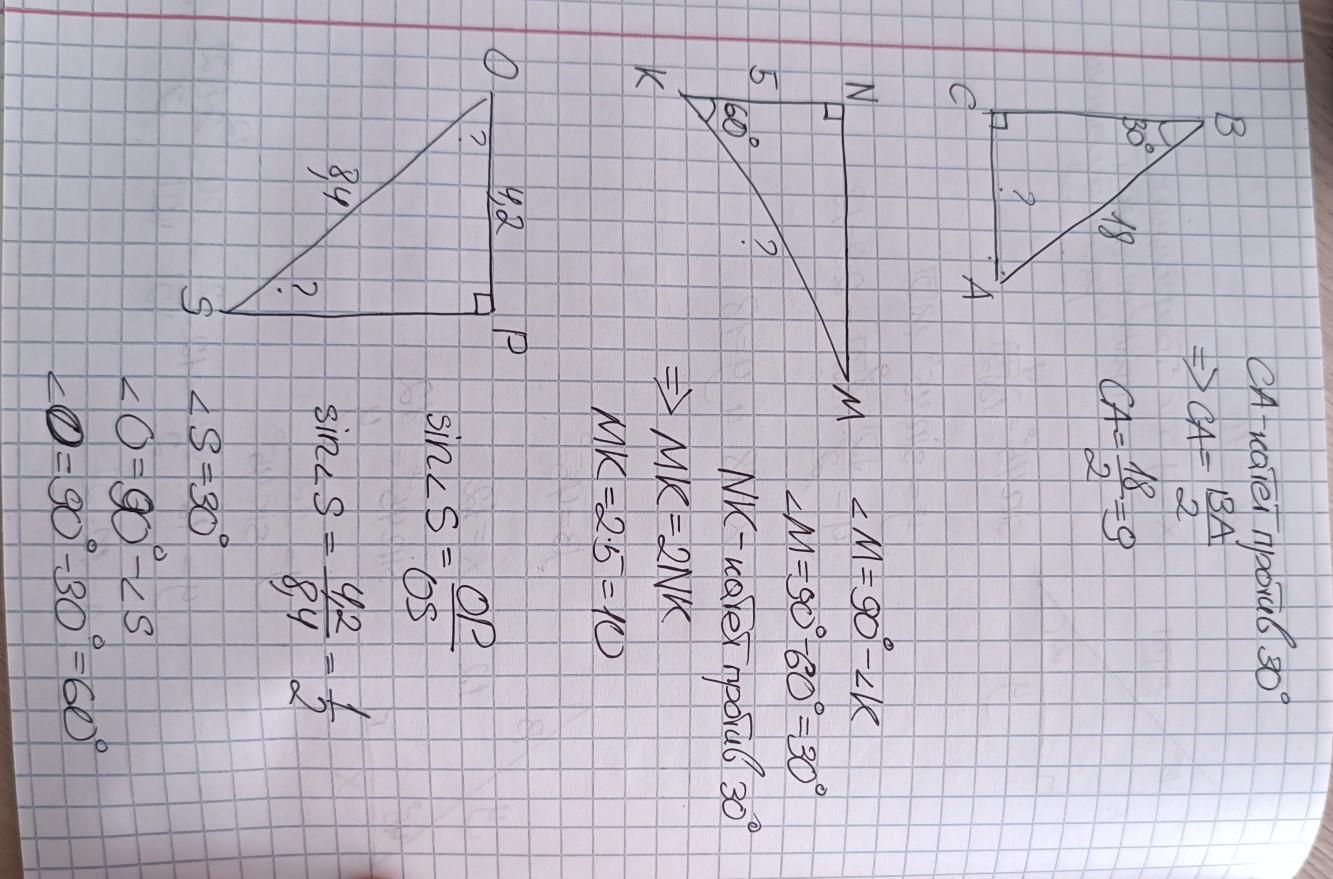 B
30°
18
C
?
A
CA-катет против 30°
⇒ CA = BA/2
CA = 18/2 = 9
N
M
5
60°
K
?
∠M = 90° - ∠K
∠M = 90° - 60° = 30°
NK - катет против 30°
⇒ MK = 2NK
MK = 2·5 = 10
O
4,2
P
?
8,4
?
S
sin∠S = OP/OS
sin∠S = 4,2/8,4 = 1/2
∠S = 30°
∠O = 90° - ∠S
∠O = 90° - 30° = 60°